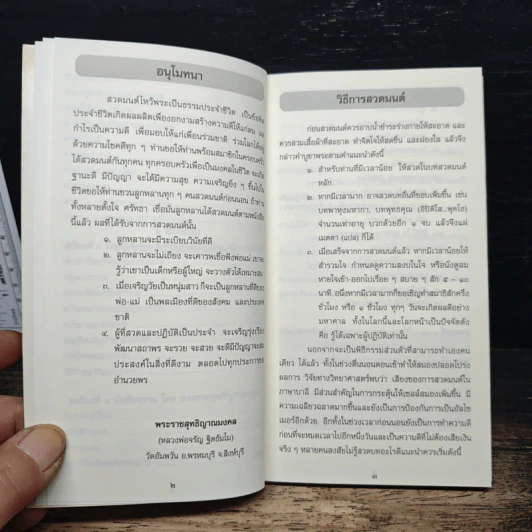 อนุโมทนา
สวดมนต์ไหว้พระเป็นธรรมประจำชีวิต เป็นกิ่ง
ประจำชีวิตเกิดผลผลิตเพื่องอกงามสร้างความดีให้แก่ตน
กำไรเป็นความดี เพื่อมอบให้แก่เพื่อนร่วมชาติ ร่วมโลก
ด้วยความโชคดีทุก ๆ ท่านขอให้พร้อมสมาชิกในครอบครัว
ได้สวดมนต์กันทุกคน ทุกครอบครัวเพื่อเป็นมงคลในชีวิต
ฐานะดี มีปัญญา จะได้มีความสุข ความเจริญยิ่ง ๆ ขึ้น
ชีวิตขอให้ท่านชวนลูกหลานทุก ๆ คนสวดมนต์ก่อนนอน
ทั้งหลายตั้งใจ ศรัทธา เชื่อมั่นลูกหลานได้สวดมนต์ตามหนังสือ
นี้แล้ว ผลที่ได้รับจากการสวดมนต์นั้น
๑. ลูกหลานจะมีระเบียบวินัยที่ดี
๒. ลูกหลานจะไม่เถียง จะเคารพเชื่อฟังพ่อแม่
รู้ว่าเขาเป็นเด็กหรือผู้ใหญ่ จะวางตัวได้เหมาะสม
๓. เมื่อเจริญวัยเป็นหนุ่มสาว ก็จะเป็นลูกหลานที่ดีของ
พ่อ-แม่ เป็นพลเมืองที่ดีของสังคม และประเทศ
ชาติ
๔. ผู้ที่สวดและปฏิบัติเป็นประจำ จะเจริญรุ่งเรือง
พัฒนาสถาพร จะรวย จะสวย จะดีมีปัญญา
ประสงค์ในสิ่งที่ดีงาม ตลอดไปทุกประการ
อำนวยพร
พระราชสุทธิญาณมงคล
(หลวงพ่อจรัญ ฐิตธัมโม)
วัดอัมพวัน อ.พรหมบุรี จ.สิงห์บุรี
๒
วิธีการสวดมนต์
ก่อนสวดมนต์ควรอาบน้ำชำระร่างกายให้สะอาด และ
ควรสวมเสื้อผ้าที่สะอาด ทำจิตใจให้สดชื่น และผ่องใส แล้วจึง
กล่าวคำบูชาพระตามคำแนะนำดังนี้
๑. สำหรับท่านที่มีเวลาน้อย ให้สวดในบทสวดมนต์
หลัก
๒. หากมีเวลามาก อาจสวดบทอื่นที่ชอบเพิ่มขึ้น เช่น
บทพาหุงมหากา, บทพุทธคุณ (อิปิติโส...พุทโธ)
จำนวนเท่าอายุ บวกด้วยอีก ๑ จบ แล้วจึงแผ่
เมตตา (แปล) ก็ได้
๓. เมื่อเสร็จจากการสวดมนต์แล้ว หากมีเวลาน้อยให้
สำรวมใจ กำหนดดูความสงบในใจ หรือนั่งดูลม
หายใจเข้า-ออกไปเรื่อย ๆ สบาย ๆ สัก ๕ - ๑๐
นาที อนึ่งหากมีเวลามากก็ขอเชิญทำสมาธิสักครึ่ง
ชั่วโมง หรือ ๑ ชั่วโมง ทุกๆ วันจะเกิดผลดีอย่าง
มหาศาล ทั้งในโลกนี้และโลกหน้าเป็นปัจจัตตัง
คือ รู้ได้เฉพาะผู้ปฏิบัติเท่านั้น
นอกจากจะเป็นพิธีกรรมส่วนตัวที่สามารถทำเองคน
เดียว ได้แล้ว ทั้งในช่วงตื่นนอนตอนเช้าทำให้สมองปลอดโปร่ง
ผลการ วิจัยทางวิทยาศาสตร์พบว่า เสียงของการสวดมนต์ใน
ภาษาบาลี มีส่วนสำคัญในการกระตุ้นให้เซลล์สมองเพิ่มขึ้น มี
ความเฉลียวฉลาดมากขึ้นและยังเป็นการป้องกันการเป็นอัลไซ
เมอร์อีกด้วย อีกทั้งในช่วงเวลาก่อนนอนยังเป็นการทำความดี
ก่อนที่จะหมดเวลาไปอีกหนึ่งวันและเป็นความดีที่ไม่ต้องเสียเงิน
จริง ๆ หลายคนสงสัยไม่รู้สวดบทอะไรดีแนะนำควรเริ่มดังนี้
๓